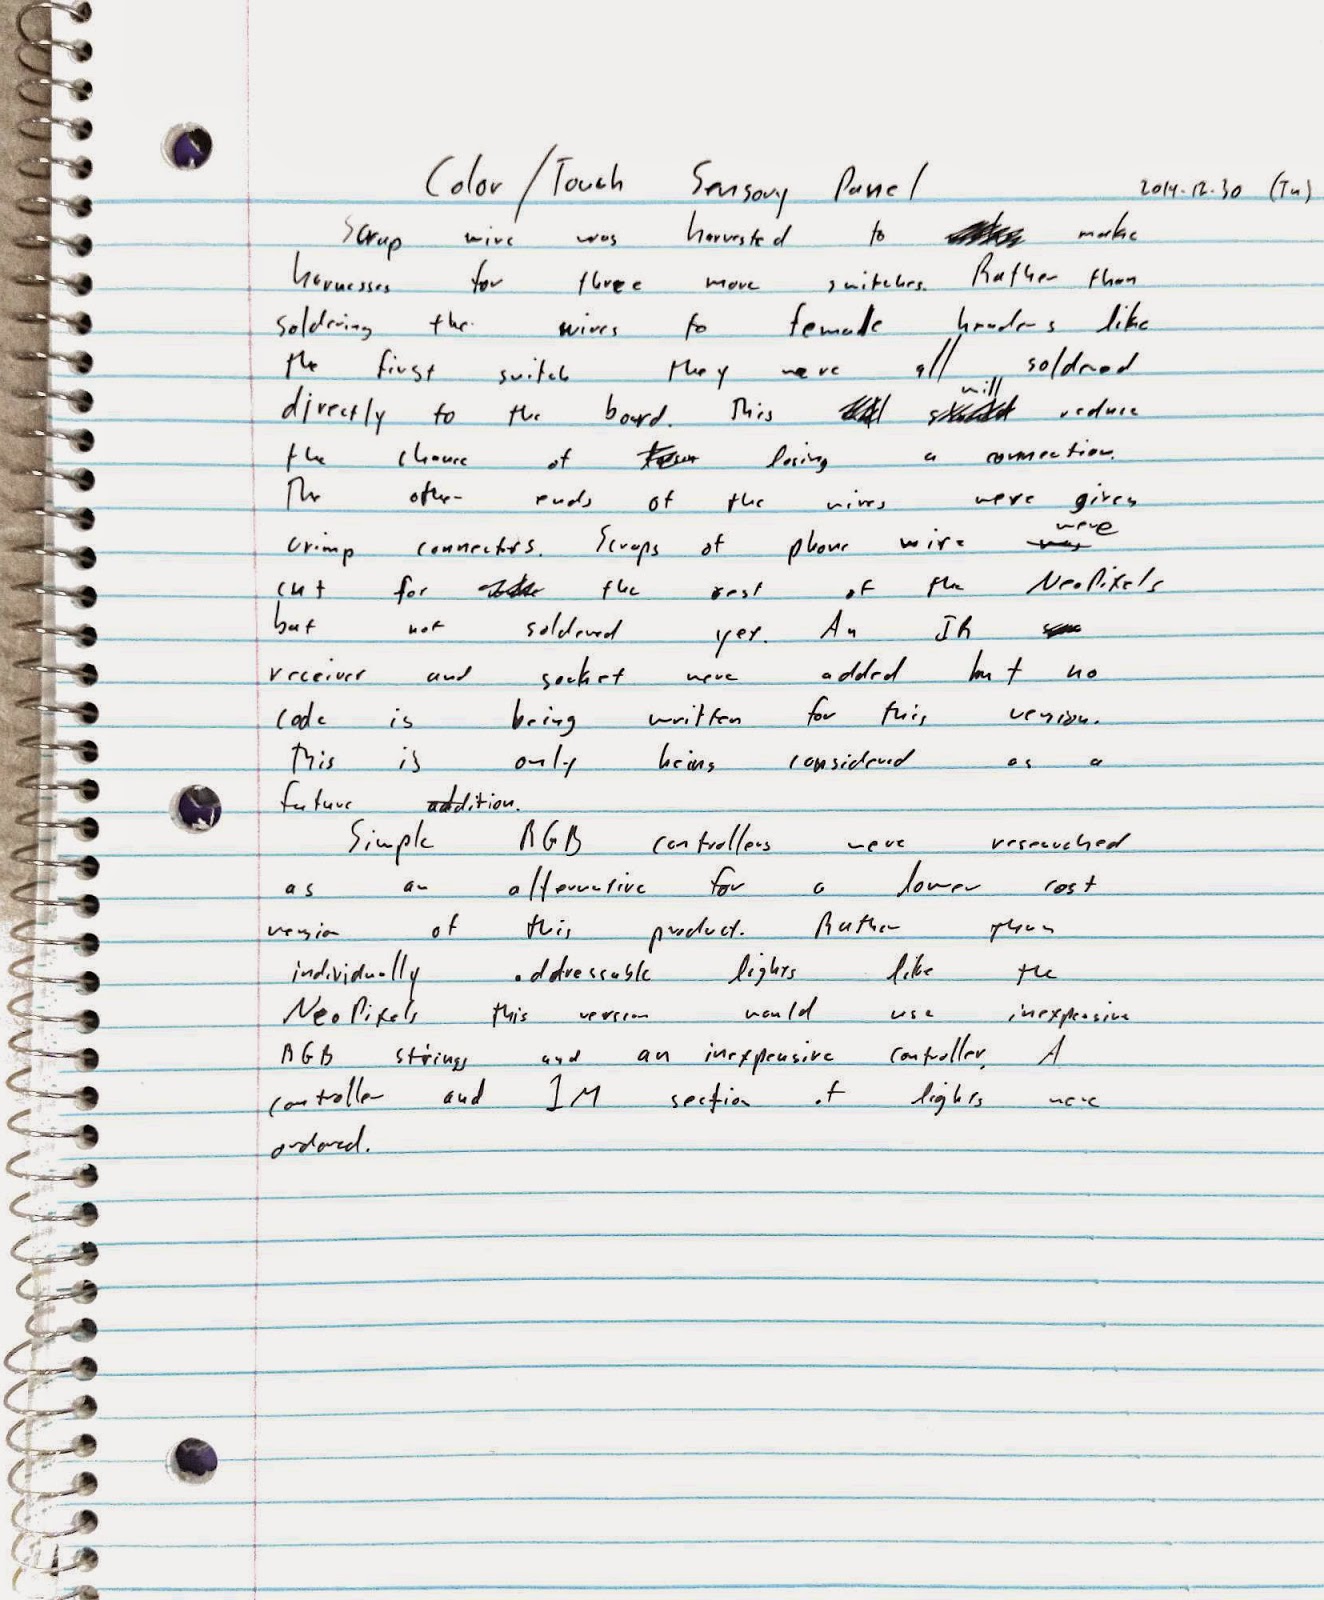 Color/Touch Sensory Panel 2014-12-30 (Tu)
Scrap wire was harvested to make
harnesses for three more switches. Rather than
soldering the wires to female headers like
the first switch they were all soldered
directly to the board. This will reduce
the chance of losing a connection.
The other ends of the wires were given
crimp connectors. Scraps of phone wire were
cut for the rest of the NeoPixels
but not soldered yet. An IR
receiver and socket were added but no
code is being written for this version.
This is only being considered as a
future addition.
Simple RGB controllers were researched
as an alternative for a lower cost
version of this product. Rather than
individually addressable lights like the
NeoPixels this version would use inexpensive
RGB strings and an inexpensive controller. A
controller and 1M section of lights were
ordered.